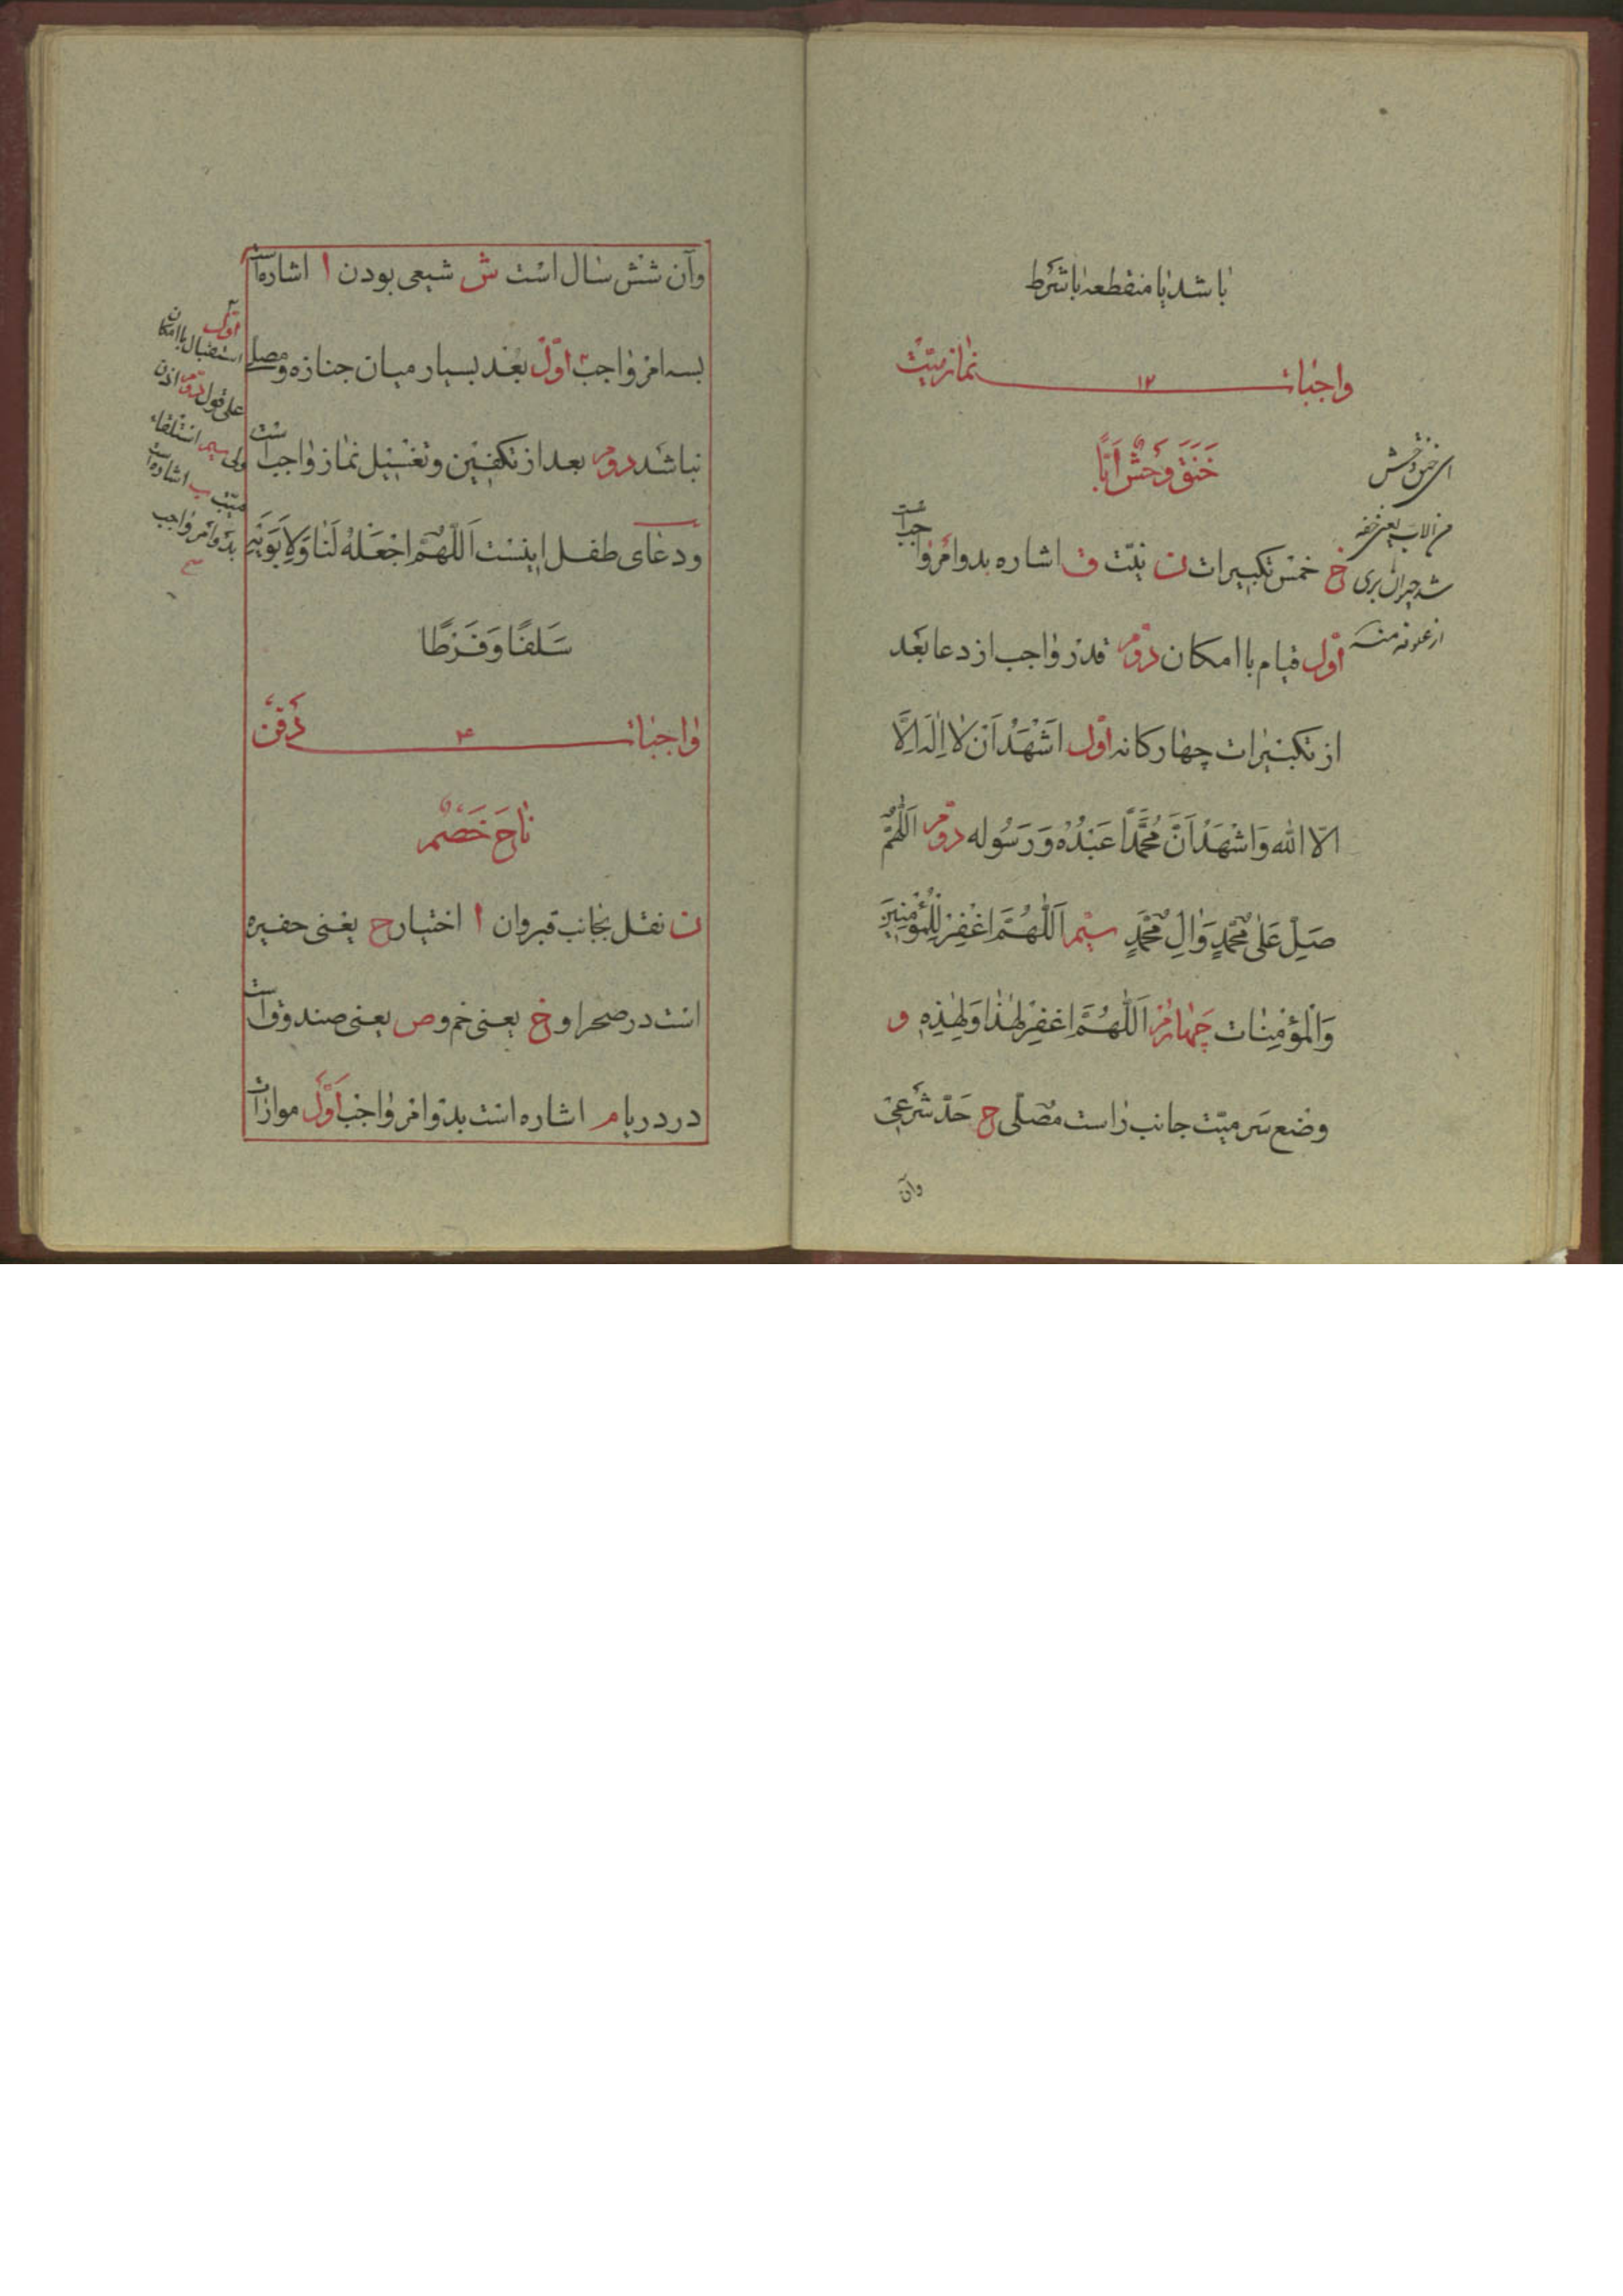 باشد یا منقطعه باشرط
واجبات ۱۲ نماز میّت
خَنَقَ وَحْشٌ اَبًّا
ای خنق وحش
من الاب یعنی خفه
شد حیران بری
از علوفه منه
خ خمس تکبیرات ن نیّت ق اشاره بدو امر واجب است
اوّل قیام با امکان دوّم قدر واجب از دعا بعد
از تکبیرات چهارکانه اوّل اَشْهَدُ اَنْ لا اِلٰهَ اِلَّا
الّا الله وَاَشْهَدُ اَنَّ مُحَمَّدًا عَبْدُهُ وَرَسُوله دوّم اَللّٰهُمَّ
صَلِّ عَلٰی مُحَمَّدٍ وَاٰلِ مُحَمَّدٍ سیّم اَللّٰهُمَّ اغْفِرْ لِلْمُؤْمِنِینَ
وَالْمُؤْمِنٰات چهارم اَللّٰهُمَّ اغْفِرْ لِهٰذا وَلِهٰذِهِ و
وضع سر میّت جانب راست مصلّی ح حدّ شرعی
وآن
وآن شش سال است ش شیعی بودن ا اشاره است
بسه امر واجب اوّل بعد بسیار میان جنازه و مصلّی
نباشد دوم بعد از تکفین و تغسیل نماز واجب است
ودعای طفل اینست اَللّٰهُمَّ اجْعَلْهُ لَنٰا وَلِاَبَوَیْهِ
سَلَفًا وَفَرَطًا
اوّل
استقبال با امکان
علی قول دوّم اذن
ولی سیم استلقاء
میّت ب اشاره است
بدو امر واجب
واجبات ۴ دفن
نٰاحَ خَصْمٌ
ن نقل بجانب قبر وان ا اختیار ح یعنی حفیره
است در صحرا و خ یعنی خم و ص یعنی صندوق است
در دریا م اشاره است بدو امر واجب اوّل موازات